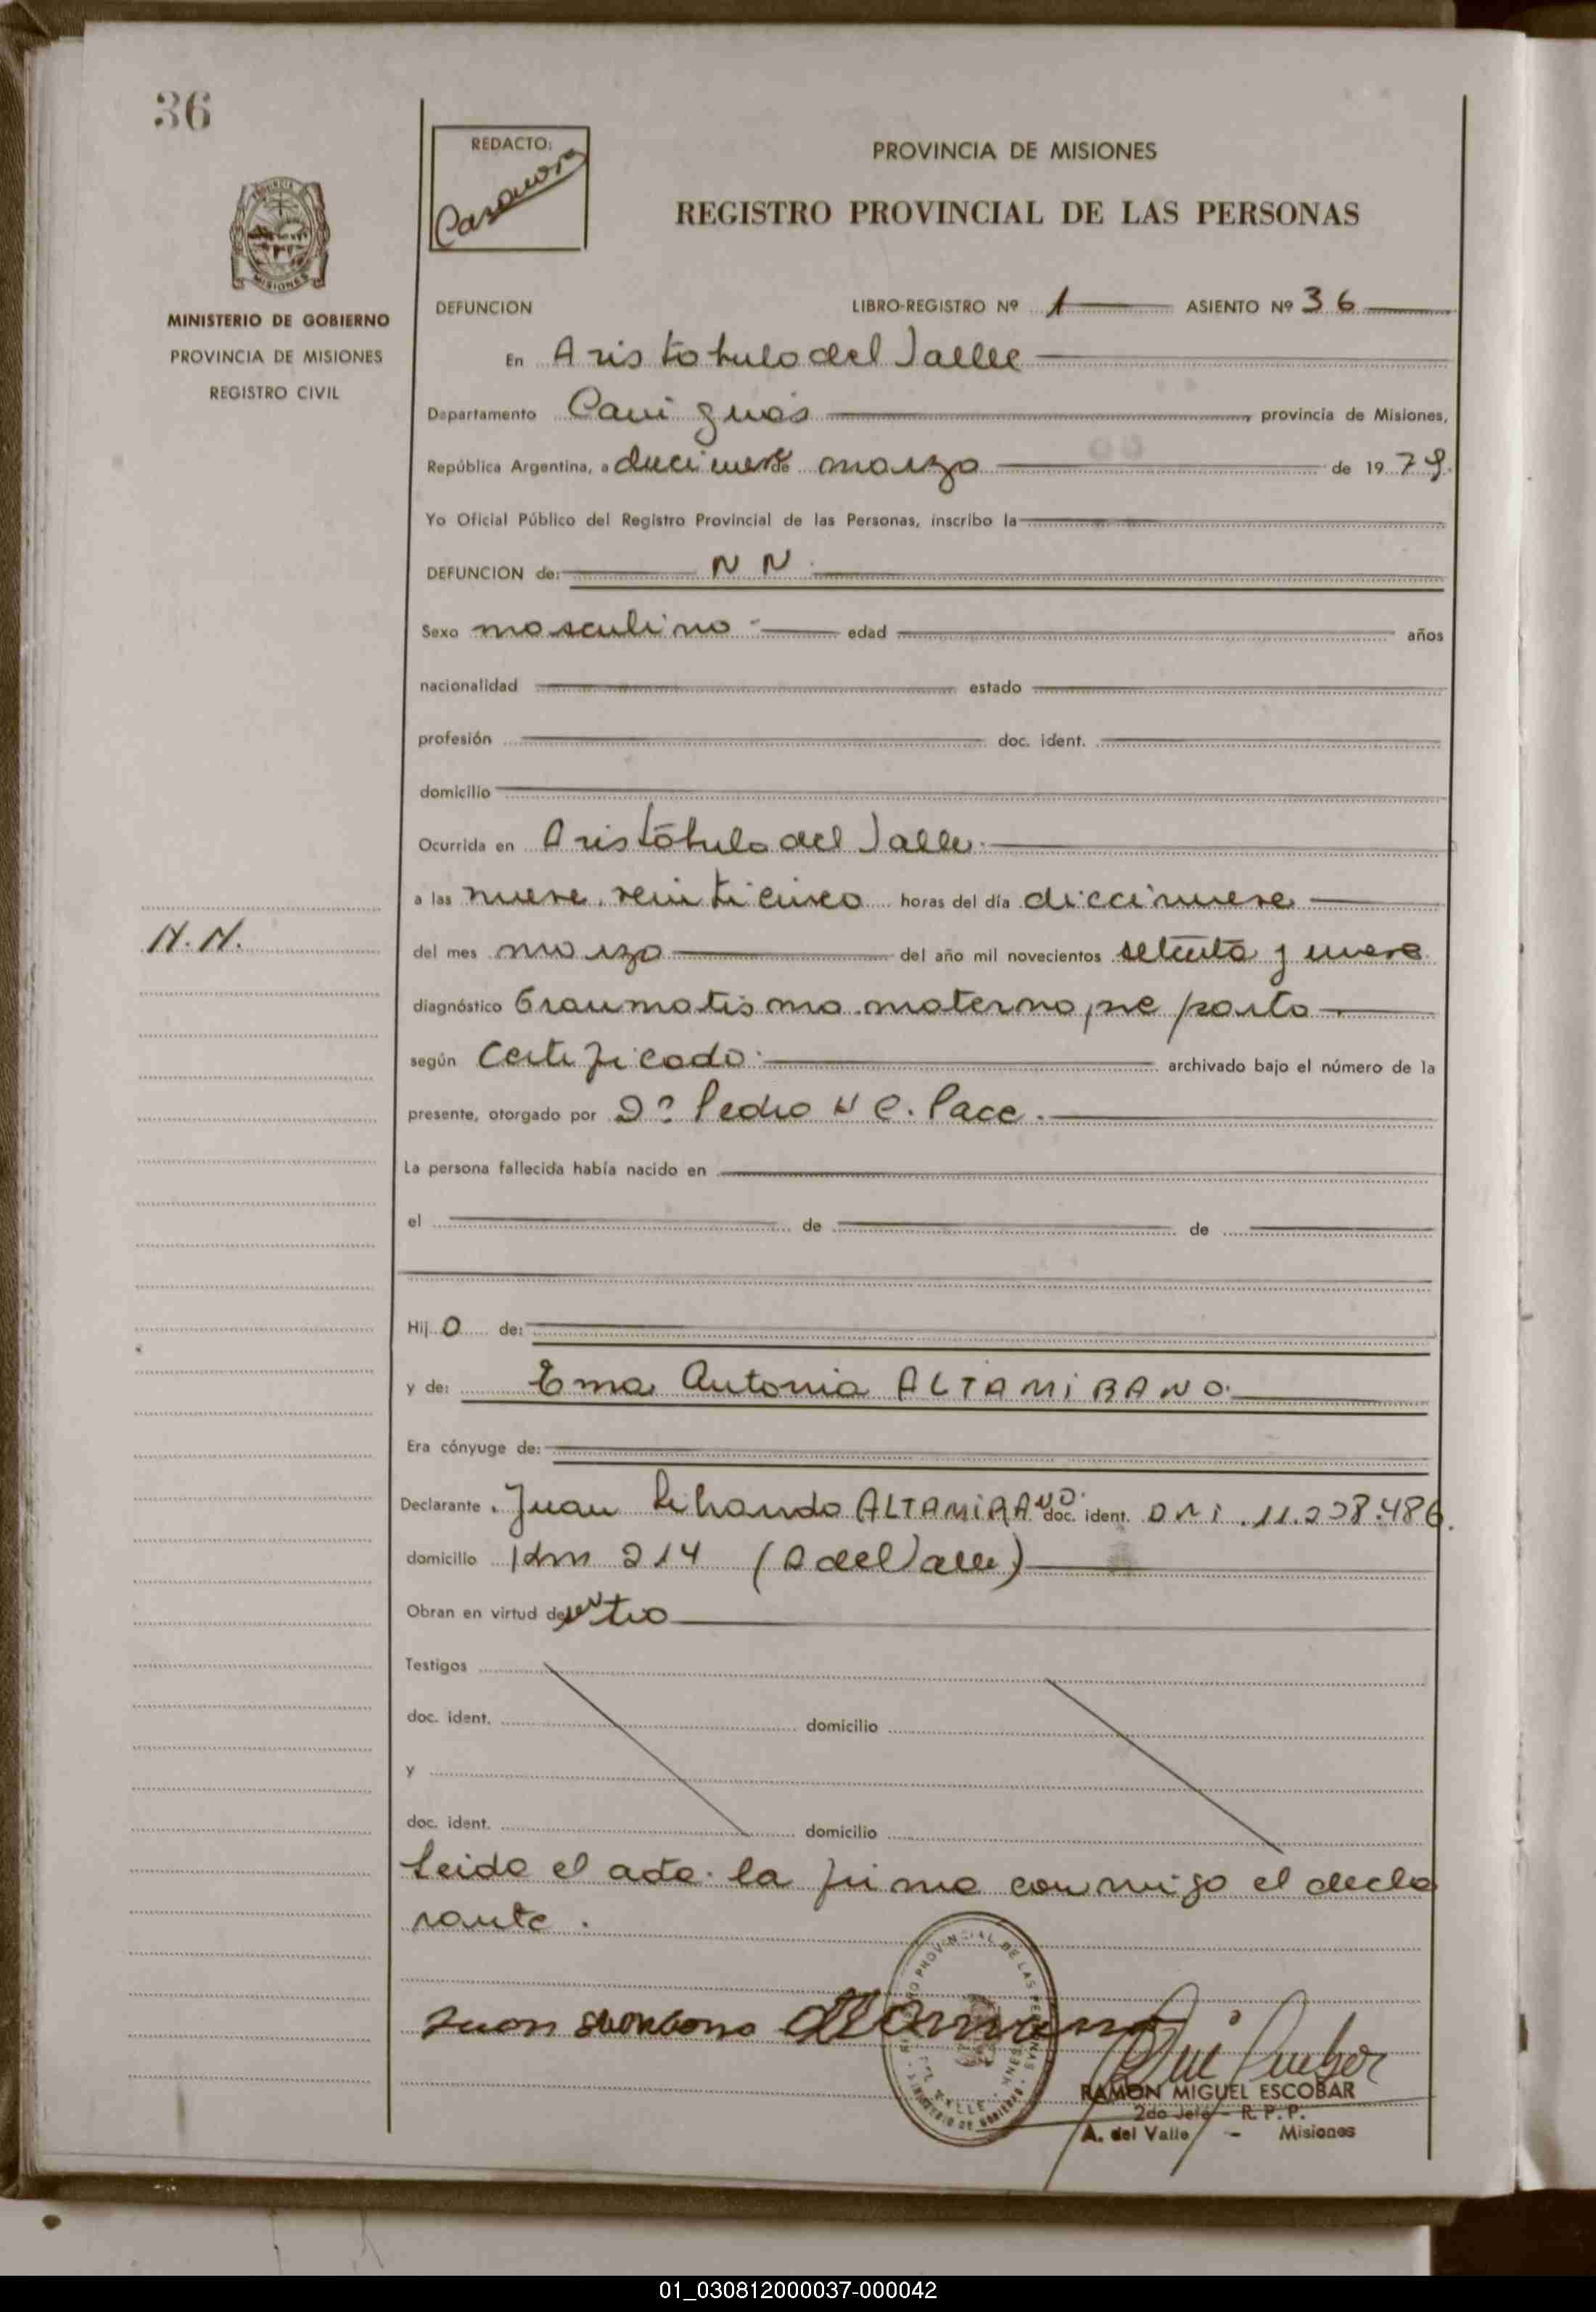 36
REDACTO:
PROVINCIA DE MISIONES
REGISTRO PROVINCIAL DE LAS PERSONAS
MINISTERIO DE GOBIERNO
PROVINCIA DE MISIONES
REGISTRO CIVIL
DEFUNCION LIBRO-REGISTRO Nº 1 ASIENTO Nº 36
En Aristobulo del Valle
Departamento Cainguás provincia de Misiones,
República Argentina, a diecinueve de marzo de 1979.
Yo Oficial Público del Registro Provincial de las Personas, inscribo la
DEFUNCION de: N N
Sexo masculino edad años
nacionalidad estado
profesión doc. ident.
domicilio
Ocurrida en Aristóbulo del Valle
a las nueve, veinticinco horas del día diecinueve
N.N.
del mes marzo del año mil novecientos setenta y nueve
diagnóstico Traumatismo materno, pre parto
según Certificado archivado bajo el número de la
presente, otorgado por Dº Pedro N C. Pace.
La persona fallecida había nacido en
el de de
Hij o de:
y de: Ema Antonia ALTAMIRANO.
Era cónyuge de:
Declarante Juan ALTAMIRANO. doc. ident. DNI. 11.238.486.
domicilio Km 214 (A del Valle)
Obran en virtud de
Testigos
doc. ident. domicilio
y
doc. ident. domicilio
Leida el acta la firma conmigo el decla
rante.
Juan
RAMON MIGUEL ESCOBAR
2do Jefe - R. P. P.
A. del Valle - Misiones
01_030812000037-000042